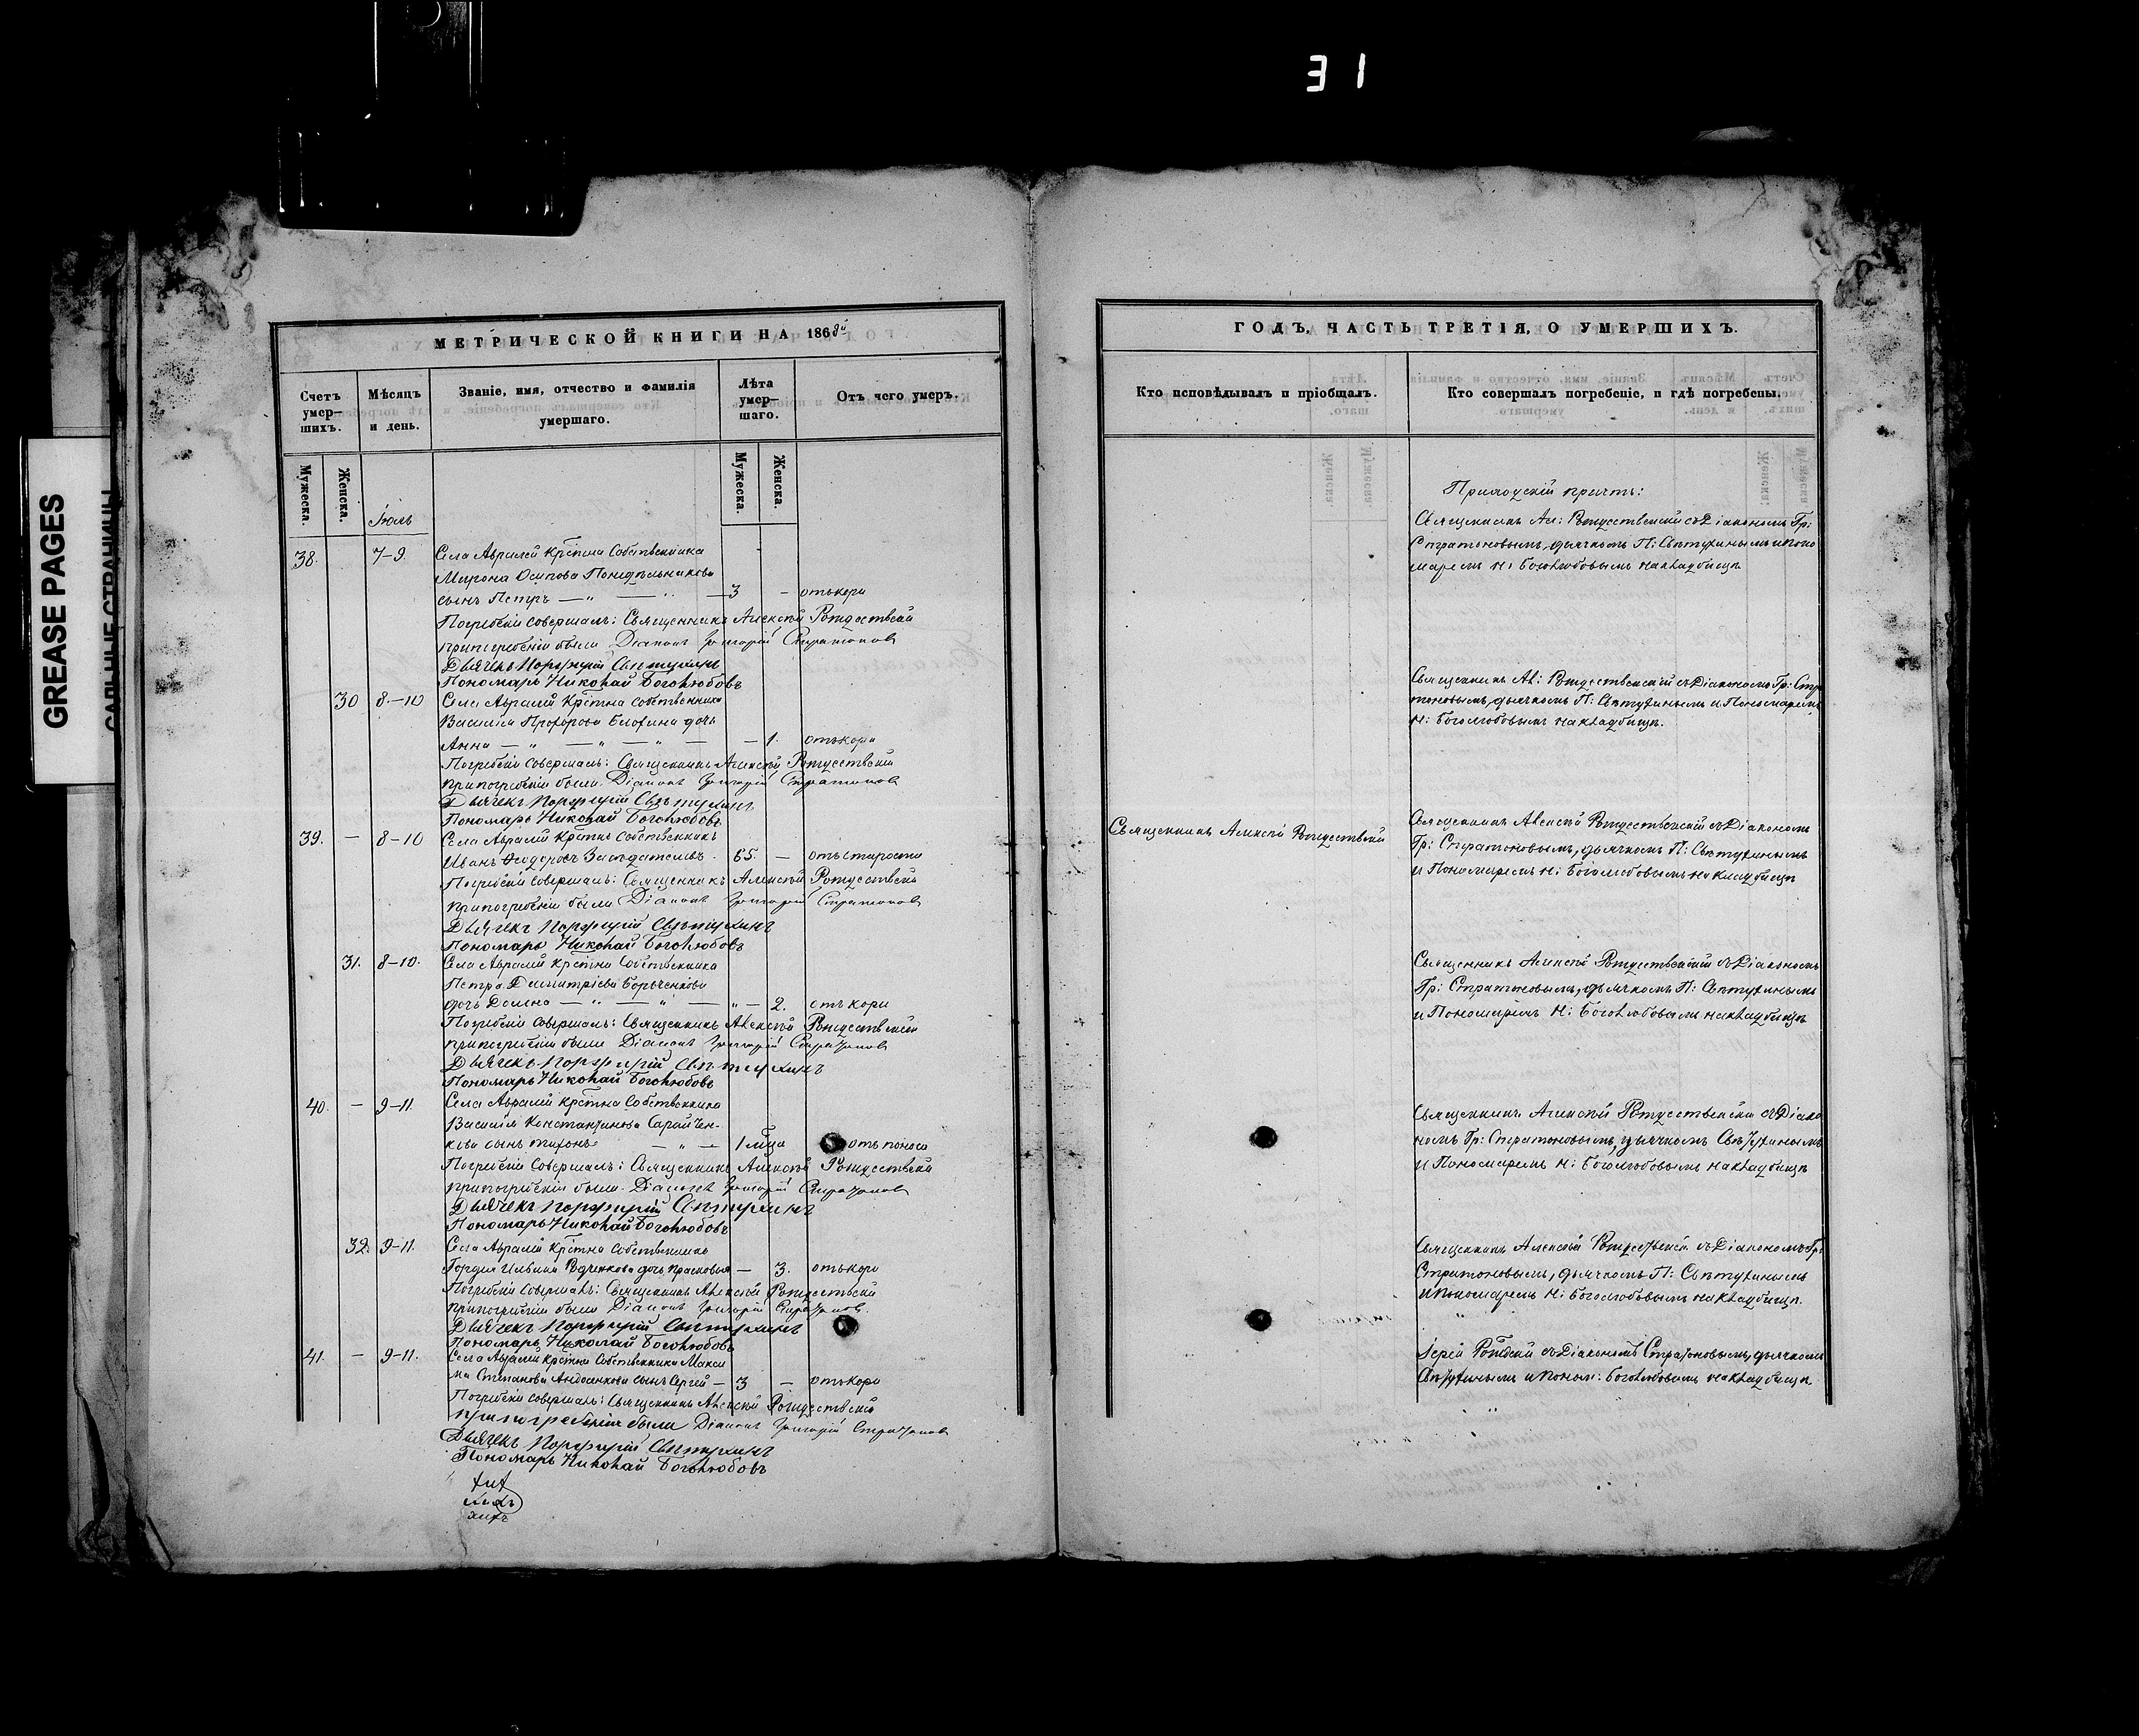 31
GREASE PAGES
МЕТРИЧЕСКОЙ КНИГИ НА 1868й
Счетъ умер-шихъ.
Мѣсяцъ и день.
Званіе, имя, отчество и фамилія умершаго.
Лѣта умер-шаго.
Отъ чего умеръ.
Мужеска.
Женска.
Мужеска.
Женска.
Іюль
38. 7-9 Села Авралей Крестна Собственника
Мирона Осипова Понедѣльникова
сынъ Петръ — " — " — 3 — отъ кори
Погребеніе совершалъ: Священникъ Алексѣй Рождественскій
при погребеніи были Діаконъ Григорій Стратоновъ
Дьячекъ Порфирій Свѣтухинъ
Пономарь Николай Боголюбовъ
30 8-10 Села Авралей Крестна собственника
Василія Прохорова дочь
Анна — " — " — " — — 1. отъ кори
Погребеніе совершалъ: Священникъ Алексѣй Рождественскій
при погребеніи были Діаконъ Григорій Стратоновъ
Дьячекъ Порфирій Свѣтухинъ
Пономарь Николай Боголюбовъ
39. — 8-10 Села Авралей Крестнъ собственникъ
Иванъ Ѳедоровъ Засѣдателевъ. 65. — отъ старости
Погребеніе совершалъ: Священникъ Алексѣй Рождественскій
при погребеніи были Діаконъ Григорій Стратоновъ
Дьячекъ Порфирій Свѣтухинъ
Пономарь Николай Боголюбовъ
31. 8-10. Села Авралей Крестна Собственника
Петра Димитріева
дочь Домна — " — " — " — 2. отъ кори
Погребеніе совершалъ: Священникъ Алексѣй Рождественскій
при погребеніи были Діаконъ Григорій Стратоновъ
Дьячекъ Порфирій Свѣтухинъ
Пономарь Николай Боголюбовъ
40. — 9-11. Села Авралей Крестна Собственника
Василія Константинова Сарайчен-
кова сынъ Тихонъ — " — 1 мѣца отъ поноса
Погребеніе Совершалъ: Священникъ Алексѣй Рождественскій
при погребеніи были Діаконъ Григорій Стратоновъ
Дьячекъ Порфирій Свѣтухинъ
Пономарь Николай Боголюбовъ
32. 9-11. Села Авралей Крестна собственника
Гордея Ильина дочь Прасковья — 3. отъ кори
Погребеніе совершалъ: Священникъ Алексѣй Рождественскій
при погребеніи были Діаконъ Григорій Стратоновъ
Дьячекъ Порфирій Свѣтухинъ
Пономарь Николай Боголюбовъ
41. — 9-11. Села Авралей Крестна Собственника Макси
ма Степанова сынъ Сергей — 3 — отъ кори
Погребеніе совершалъ: Священникъ Алексѣй Рождественскій
при погребеніи были Діаконъ Григорій Стратоновъ
Дьячекъ Порфирій Свѣтухинъ
Пономарь Николай Боголюбовъ
ГОДЪ, ЧАСТЬ ТРЕТІЯ, О УМЕРШИХЪ.
Кто исповѣдывалъ и пріобщалъ.
Кто совершалъ погребеніе, и гдѣ погребены.
Приходскій причтъ:
Священникъ Ал: Рождественскій съ Діакономъ Гр:
Стратоновымъ, дьячкомъ П: Свѣтухинымъ и поно
маремъ Н: Боголюбовымъ на кладбищѣ
Священникъ Ал: Рождественскій съ Діакономъ Гр: Стра
тоновымъ, дьячкомъ П: Свѣтухинымъ и Пономаремъ
Н: Боголюбовымъ на кладбищѣ.
Священникъ Алексѣй Рождественскій
Священникъ Алексѣй Рождественскій съ Діакономъ
Гр: Стратоновымъ, дьячкомъ П: Свѣтухинымъ
и Пономаремъ Н: Боголюбовымъ на кладбищѣ
Священникъ Алексѣй Рождественскій съ Діакономъ
Гр: Стратоновымъ, дьячкомъ П: Свѣтухинымъ
и Пономаремъ Н: Боголюбовымъ на кладбищѣ
Священникъ Алексѣй Рождественскій съ Діако
номъ Гр: Стратоновымъ, дьячкомъ Свѣтухинымъ
и Пономаремъ Н: Боголюбовымъ на кладбищѣ
Священникъ Алексѣй Рождественскій съ Діакономъ Гр:
Стратоновымъ, дьячкомъ П: Свѣтухинымъ
и пономаремъ Н: Боголюбовымъ на кладбищѣ.
Іерей съ Діакономъ Стратоновымъ, дьячкомъ
Свѣтухинымъ и поном: Боголюбовымъ на кладбищѣ